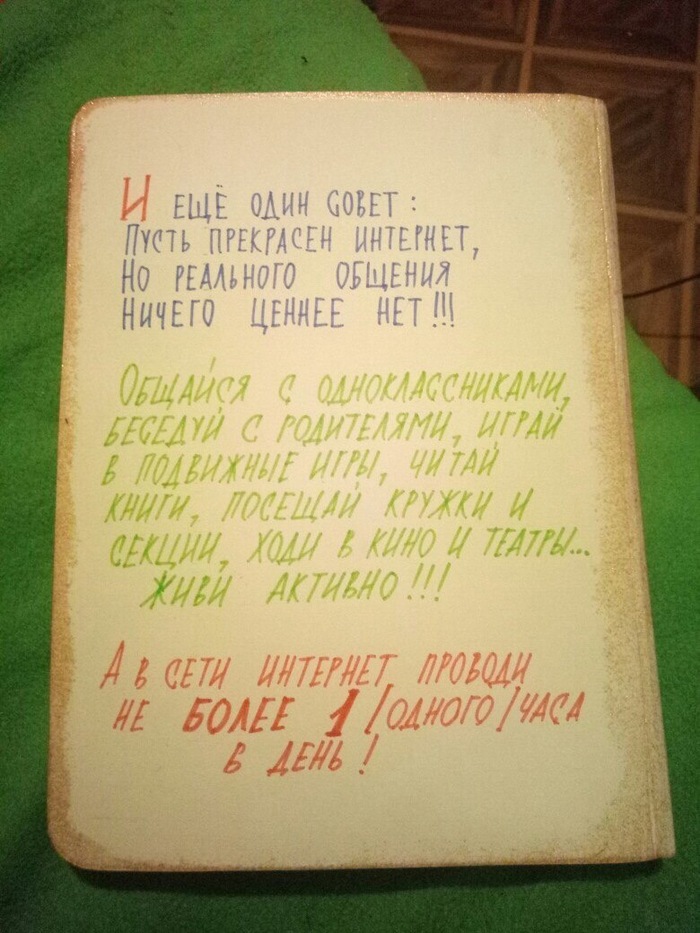 И ЕЩЁ ОДИН СОВЕТ:
ПУСТЬ ПРЕКРАСЕН ИНТЕРНЕТ,
НО РЕАЛЬНОГО ОБЩЕНИЯ
НИЧЕГО ЦЕННЕЕ НЕТ!!!
ОБЩАЙСЯ С ОДНОКЛАССНИКАМИ,
БЕСЕДУЙ С РОДИТЕЛЯМИ, ИГРАЙ
В ПОДВИЖНЫЕ ИГРЫ, ЧИТАЙ
КНИГИ, ПОСЕЩАЙ КРУЖКИ И
СЕКЦИИ, ХОДИ В КИНО И ТЕАТРЫ...
ЖИВИ АКТИВНО!!!
А В СЕТИ ИНТЕРНЕТ ПРОВОДИ
НЕ БОЛЕЕ 1 /ОДНОГО/ ЧАСА
В ДЕНЬ!